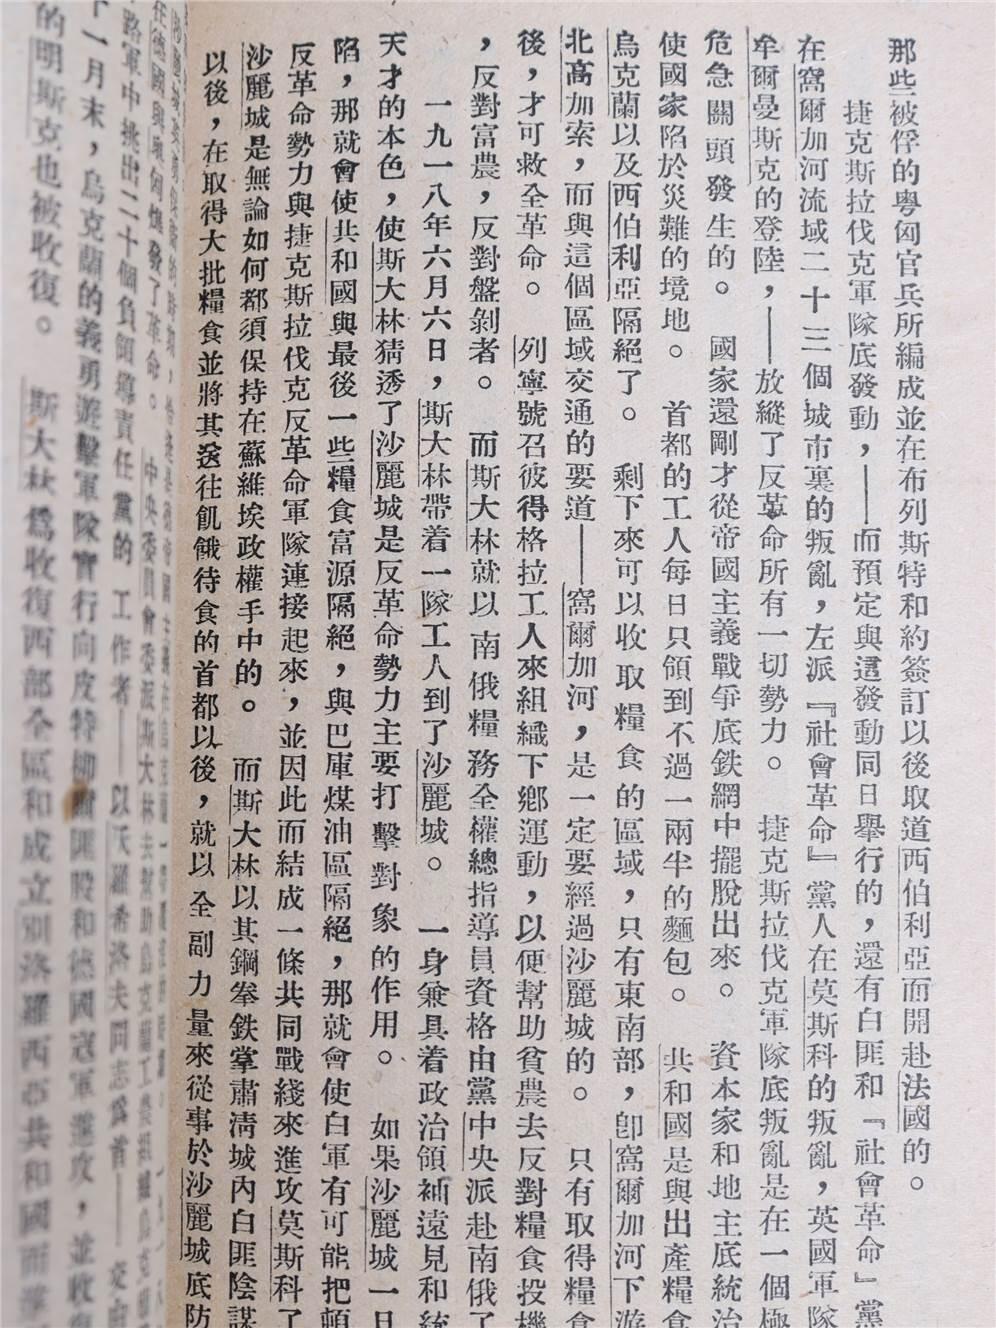 那些被俘的粵匈官兵所編成並在布列斯特和約簽訂以後取道西伯利亞而開赴法國的。
捷克斯拉伐克軍隊底發動，——而預定與這發動同日舉行的，還有白匪和『社會革命』黨
在窩爾加河流域二十三個城市裏的叛亂，左派『社會革命』黨人在莫斯科的叛亂，英國軍隊
牟爾曼斯克的登陸，——放縱了反革命所有一切勢力。　捷克斯拉伐克軍隊底叛亂是在一個極
危急關頭發生的。　國家還剛才從帝國主義戰爭底鉄網中擺脫出來。　資本家和地主底統治
使國家陷於災難的境地。　首都的工人每日只領到不過一兩半的麵包。　共和國是與出產糧食
烏克蘭以及西伯利亞隔絕了。　剩下來可以收取糧食的區域，只有東南部，卽窩爾加河下游
北高加索，而與這個區域交通的要道——窩爾加河，是一定要經過沙麗城的。　只有取得糧食
後，才可救全革命。　列寧號召彼得格拉工人來組織下鄉運動，以便幫助貧農去反對糧食投機
，反對富農，反對盤剝者。　而斯大林就以南俄糧務全權總指導員資格由黨中央派赴南俄了
一九一八年六月六日，斯大林帶着一隊工人到了沙麗城。　一身兼具着政治領袖遠見和統
天才的本色，使斯大林猜透了沙麗城是反革命勢力主要打擊對象的作用。　如果沙麗城一日
陷，那就會使共和國與最後一些糧食富源隔絕，與巴庫煤油區隔絕，那就會使白軍有可能把頓
反革命勢力與捷克斯拉伐克反革命軍隊連接起來，並因此而結成一條共同戰綫來進攻莫斯科了
沙麗城是無論如何都須保持在蘇維埃政權手中的。　而斯大林以其鋼拳鉄掌肅淸城內白匪陰謀
以後，在取得大批糧食並將其送往飢餓待食的首都以後，就以全副力量來從事於沙麗城底防
路軍中挑出二十個負領導責任黨的工作者——以伏羅希洛夫同志爲首——
十一月末，烏克蘭的義勇遊擊軍隊實行向皮特柳爾匪股和德國寇軍進攻，並收復
的明斯克也被收復。　斯大林爲收復西部全區和成立別洛羅西亞共和國而